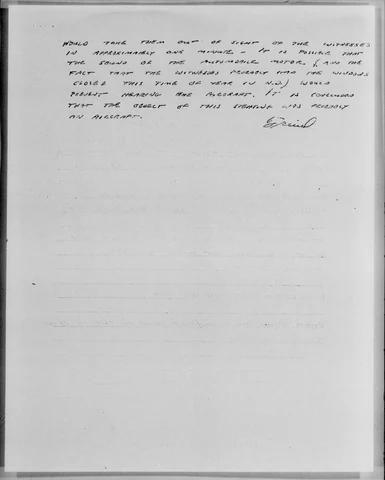 WOULD TAKE THEM OUT OF SIGHT OF THE WITNESSES
IN APPROXIMATELY ONE MINUTE - IT IS POSSIBLE THAT
THE SOUND OF THE AUTOMOBILE MOTOR, (AND THE
FACT THAT THE WITNESSES PROBABLY HAD THE WINDOWS
CLOSED THIS TIME OF YEAR IN N.D.) WOULD
PREVENT HEARING THE AIRCRAFT. IT IS CONCLUDED
THAT THE OBJECT OF THIS SIGHTING WAS PROBABLY
AN AIRCRAFT.